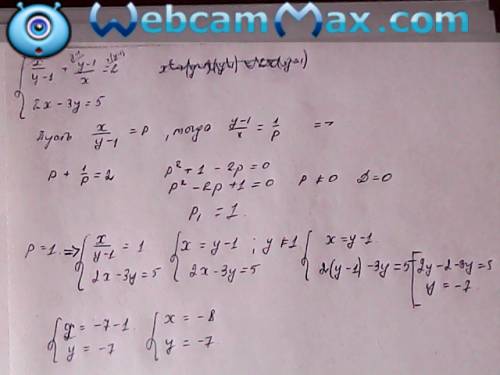 WebcamMax.com
{ x/(y-1) + (y-1)/x = 2
{ 2x-3y=5
Пусть x/(y-1) = p, тогда (y-1)/x = 1/p =>
p + 1/p = 2 p²+1-2p=0
p²-2p+1=0 p≠0 D=0
p₁ = 1.
p=1. => { x/(y-1) = 1 { x = y-1 ; y≠1 { x = y-1
{ 2x-3y=5 { 2x-3y=5 { 2(y-1)-3y=5 [ 2y-2-3y=5
y = -7
{ y = -7-1 { x = -8
{ y = -7 { y = -7